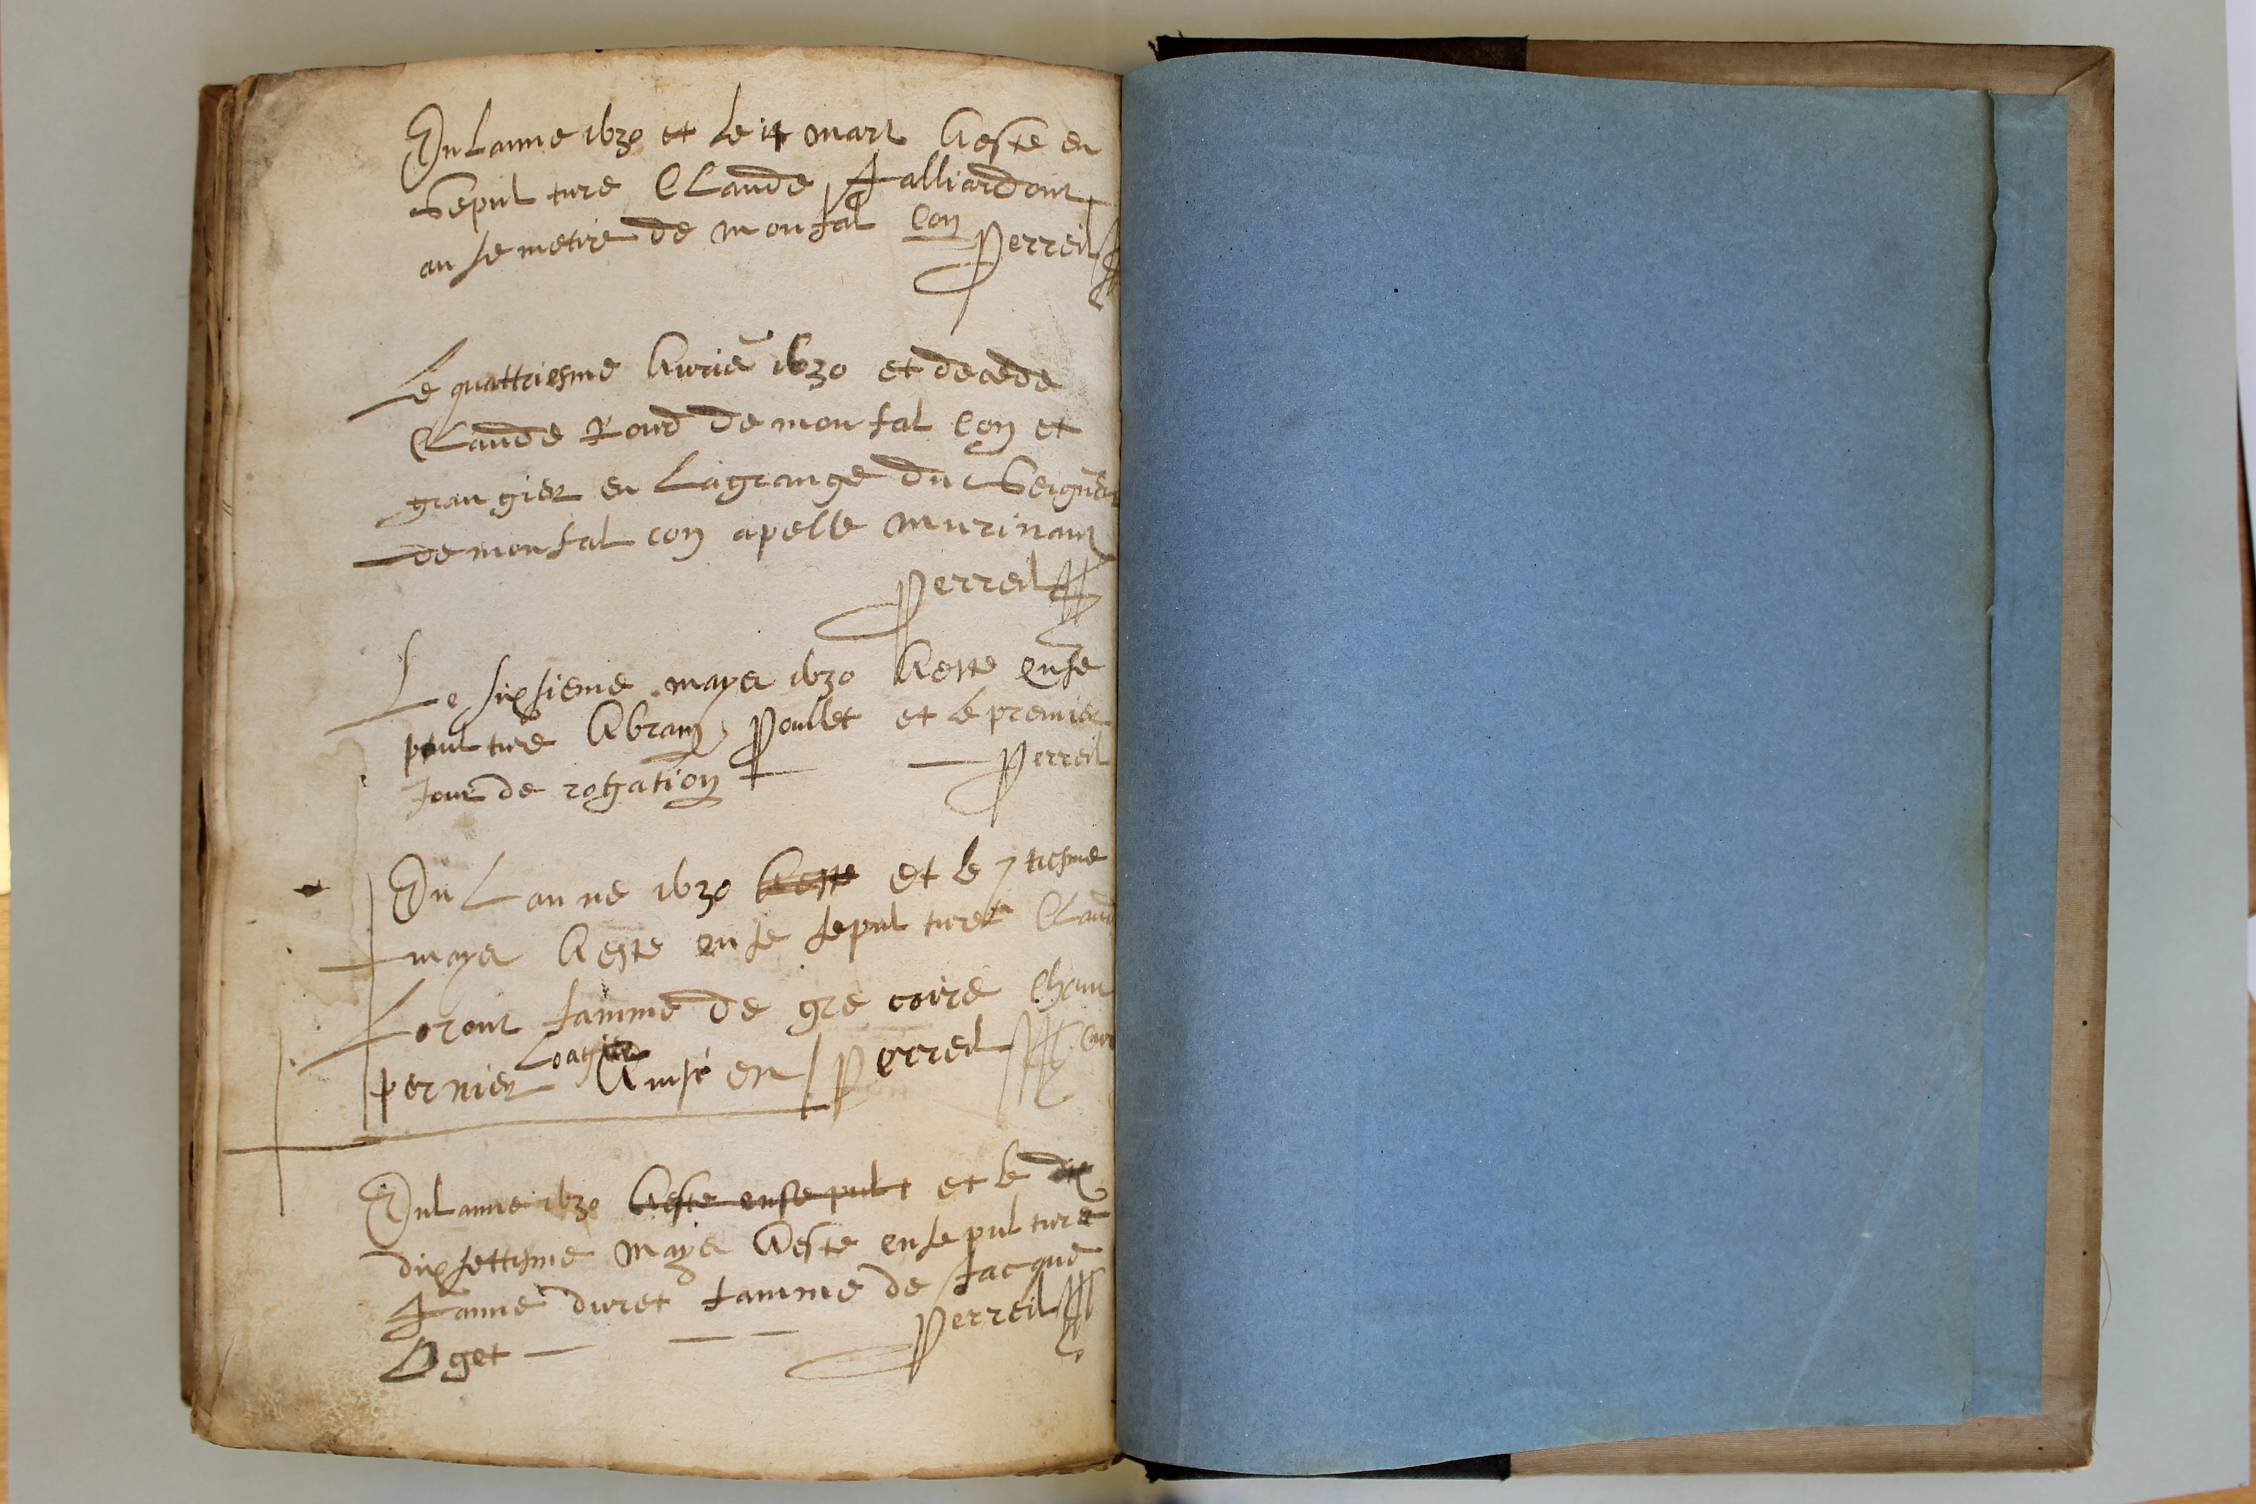 En Lanne 1630 et le 14 mart A este en
Sepul ture Claude Jalliardout
au semetire de monfal con Perreil
Le quattriesme Avrie 1630 et decede
Claude Roud de monfal con et
grangier en Lagrange du Seigneu
de monfal con apelle murinam
Perreil
Le sixsieme maya 1630 A este ense
pul ture Abram Poullet et le premier
Jour de rogation Perreil
En Lan ne 1630 A este et le 7 tiesme
maya A este en se sepul ture Claud
Loront famme de gre coire
pernier en Perreil
En Lanne 1630 A este ense pult et le dix
dixsettisme Maya A este en se pul ture
Janne duret famme de Jacque
Oget Perreil